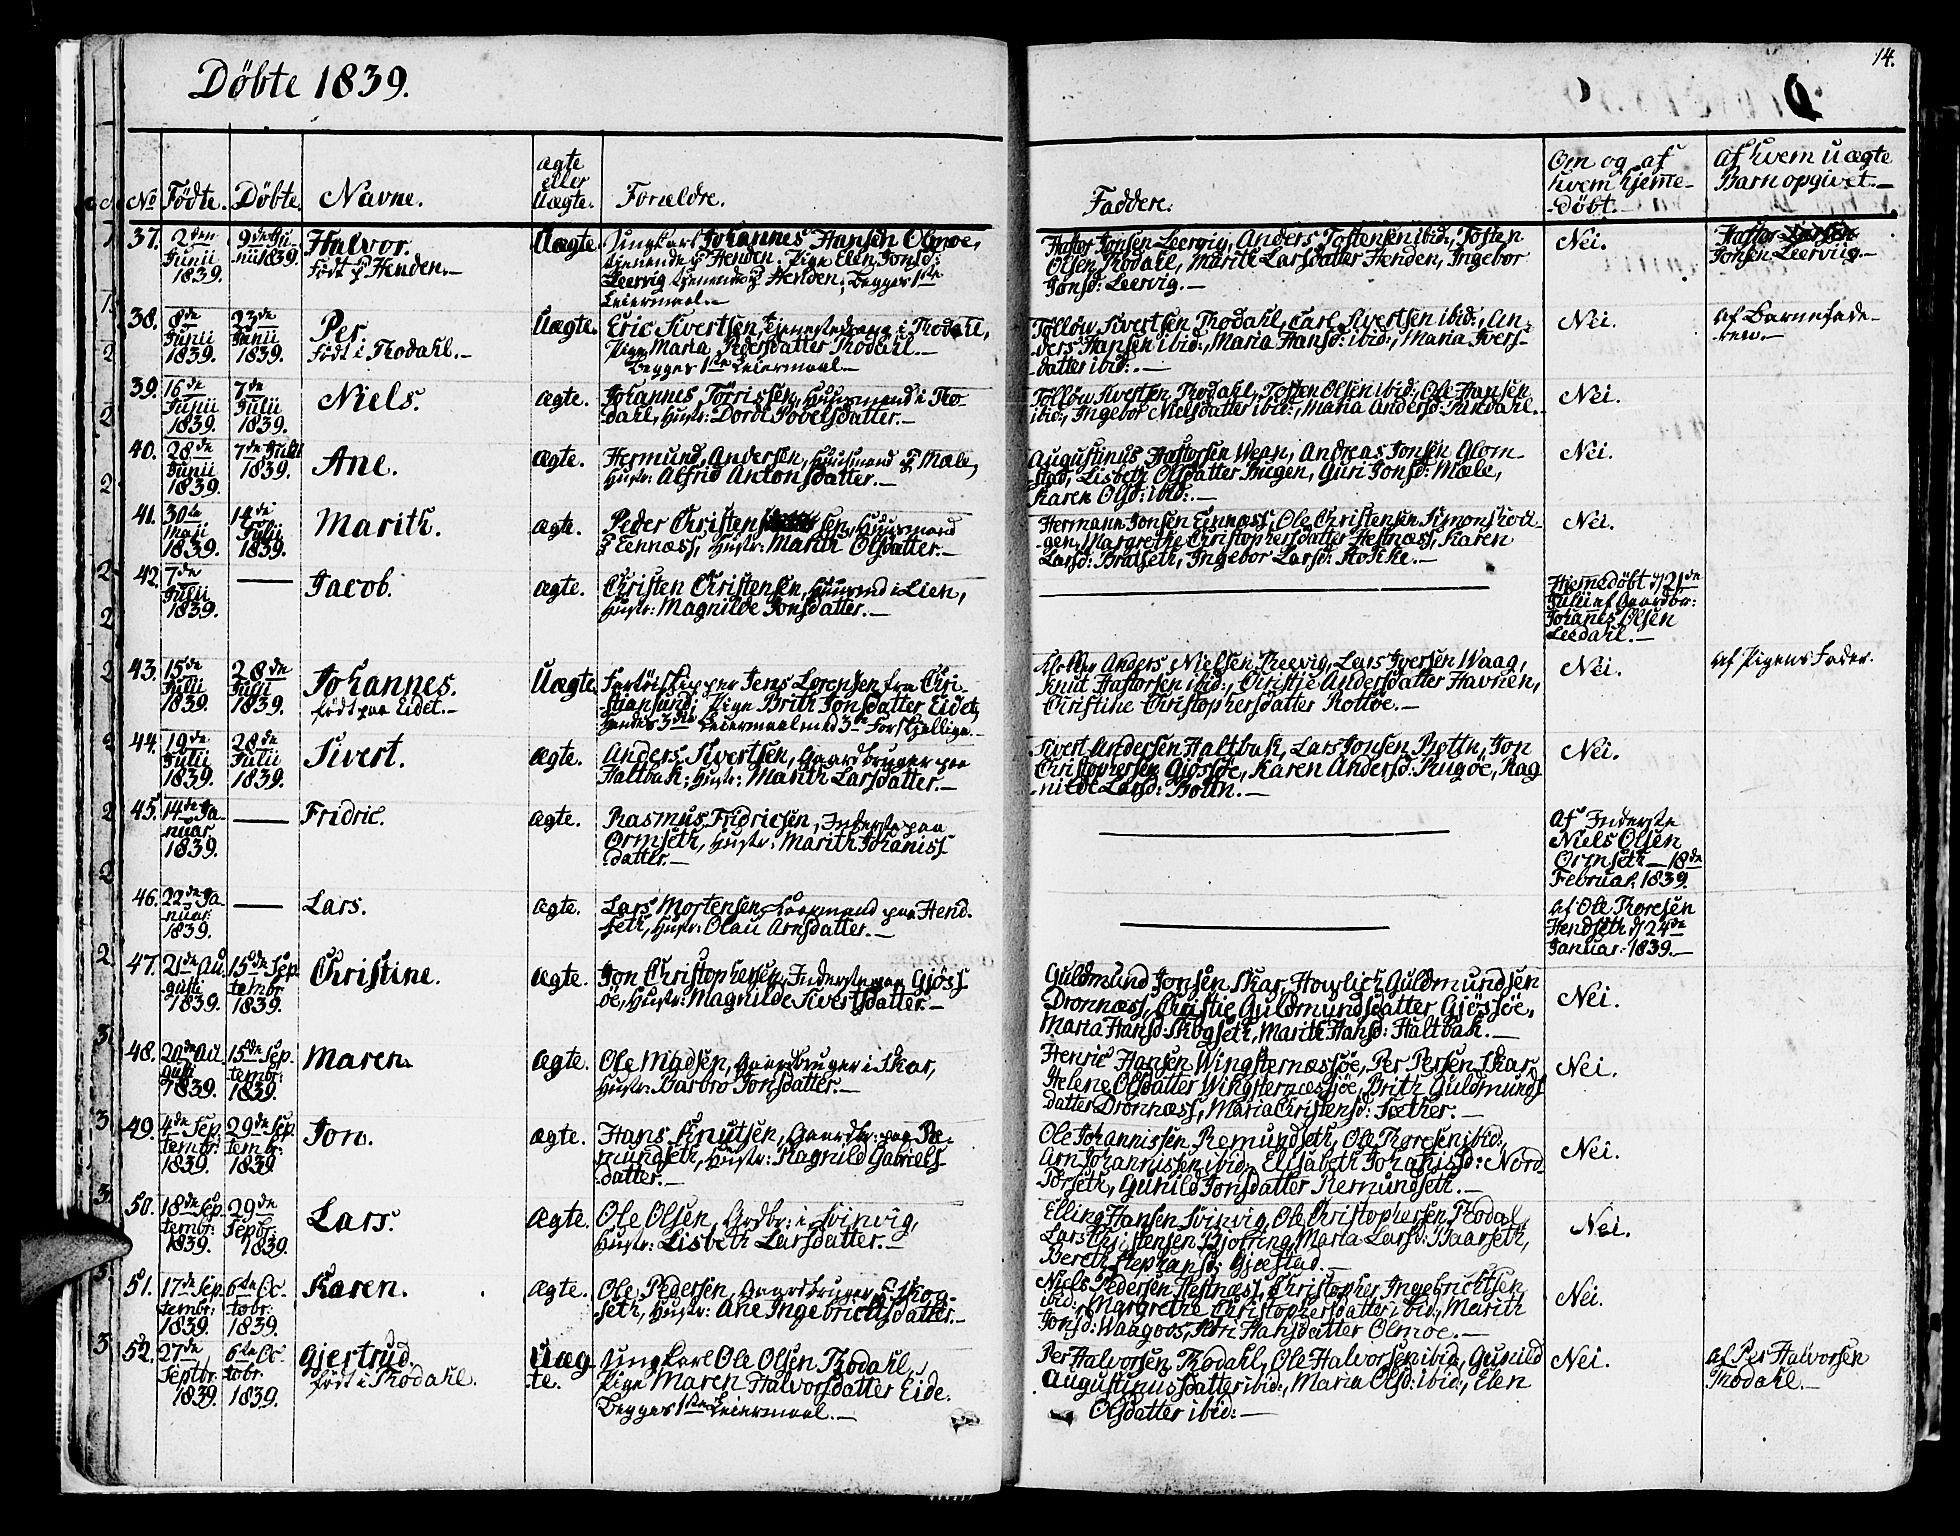 Döbte 1839.
14.
No
Födte.
Döbte.
Navne.
ægte
eller
Uægte.
Forældre.
Faddere.
Om og af
hvem hjeme-
döbt.
af hvem uægte
Barn opgivet.
37.
2den
Junii
1839.
9de Ju
nii 1839.
Halvor.
födt p Henden.
Uægte.
Ungkarl Johannes Hansen Olmoe,
tjenende p Henden. Pige Elen Jonsd:
Leervig tjenende p Henden, Begges 1ste
Leiermaal.
Haftor Jonsen Leervig, Anders Tostensen ibid:, Tosten
Olsen Thodahl, Marite Larsdatter Henden, Ingebor
Jonsd: Leervig.
Nei.
Haftor
Jonsen Leerviig.
38.
8de
Junii
1839.
23de
Junii
1839.
Per.
födt i Thodahl.
Uægte.
Eric Sivertsen, tjenestedreng i Thodahl,
Pige Maria Pedersdatter Thodahl.
Begges 1ste Leiermaal.
Tollöw Sivertsen Thodahl, Carl Sivertsen ibid:, An-
ders Hansen ibid:, Maria Hansd: ibid:, Maria Ivers-
datter ibid:.
Nei.
af Barnefade-
ren.
39.
16de
Junii
1839.
7de
Julii
1839.
Niels.
ægte.
Johannes Törrissen, Huusmand i Tho-
dahl, Hustr: Dorde Povelsdatter.
Tollöw Sivertsen Thodahl, Tosten Olsen ibid:, Ole Hansen
ibid:, Ingebor Nielsdatter ibid:, Maria Andersd:
Nei.
40.
28de
Junii
1839.
7de Julii
1839.
Ane.
ægte.
Hermund Andersen, Huusmand p Mæle,
Hustr: Alfrid Antonsdatter.
Augustinus Haftorsen Wean, Andreas Jonsen Glom-
stad, Lisbeth Olsdatter Bugen, Guri Jonsd: Mæle,
Karen Olsd: ibid:.
Nei.
41.
30te
Maji
1839.
14de
Julii
1839.
Marith.
ægte.
Peder Christensen, Huusmand
p Eennæss, Hustr: Marith Olsdatter.
Hermann Jonsen Eennæss, Ole Christensen Simonskou-
gen, Margrethe Christophersdatter Hestnæss, Karen
Larsd: Bratseth, Ingebor Larsd:
Nei.
42.
7de
Julii
1839.
Jacob.
ægte.
Christen Christensen, Huusmd i Lien,
Hustr: Magnilde Jonsdatter.
Hjemedöbt d 21de
Julii af Gaardbr:
Johanes Olsen
Leedahl.
43.
15de
Julii
1839.
28de
Julii
1839.
Johannes.
födt paa Eidet.
Uægte.
Jens Lorensen fra Chri-
stiansund; Pige Brith Jonsdatter Eidet,
hendes 3die Leiermaal med 3de Forskjellige.
Anders Nielsen Reevig, Lars Iversen Waag,
Knut Haftorsen ibid:, Christie Andersdatter Havnen,
Christine Christophersdatter Rottöe.
Nei.
af Pigens Fader.
44.
19de
Julii
1839.
28de
Julii
1839.
Sivert.
ægte.
Anders Sivertsen, Gaardbruger paa
Haltbak, Hustr: Marith Larsdatter.
Sivert Andersen Haltbak, Lars Jonsen Bottn, Jon
Christophersen Gjössöe, Karen Andersd: Rugöe, Rag
nilde Larsd: Bottn.
Nei.
45.
14de Ja-
nuar
1839.
Fridric.
ægte.
Rasmus Fridricsen, Inderste paa
Ormseth, Hustr: Marith Johaniss
datter.
af Inderste
Niels Olsen
Ormseth 18de
Februar 1839.
46.
22de Ja-
nuar
1839.
Lars.
ægte.
Lars Mortensen Huusmand paa Hend-
seth, Hustr: Olau Arnsdatter.
af Ole Thoresen
Hendseth d 24de
Januar: 1839.
47.
21de Au-
gusti
1839.
15de Sep-
tembr:
1839.
Christine.
ægte.
Jon Christophersen Inderste paa Gjöss
öe, Hustr: Magnilde Sivertsdatter.
Guldmund Jonsen Skar, Howlich Guldmundsen
Dronnæss, Christie Guldmundsdatter Gjössöe,
Maria Hansd: Skogseth, Marite Hansd: Haltbak.
Nei.
48.
20de Au
gusti
1839.
15de Sep
tembr:
1839.
Maren.
ægte.
Ole Madsen, Gaardbruger i Skar,
Hustr: Barbro Jonsdatter.
Henric Hansen Wingsternæssöe, Per Persen Skar,
Helene Olsdatter Wingsternæssöe, Brith Guldmunds
datter Dronnæss, Maria Christensd: Sæther.
Nei.
49.
4de Sep
tembr:
1839.
29de Sep
tembr:
1839
Jon.
ægte.
Hans Knutsen, Gaardbr: paa Re-
mundseth, Hustr: Ragnild Gabriels
datter.
Ole Johannissen Remundseth, Ole Thoresen ibid:,
Arn Johannissen ibid:, Elisabeth Johanisd: Nord
Torseth, Gunild Jonsdatter Remundseth.
Nei.
50.
18de Sep
tembr:
1839.
29de
Sepbr:
1839.
Lars.
ægte.
Ole Olsen, Grdbr: i Svinvig,
Hustr: Lisbeth Larsdatter.
Elling Hansen Svinvig, Ole Christophersen Thodal,
Lars Christensen Bjofring, Maria Larsd: Baarseth,
Bereth Stephansd: Gjæstad.
Nei.
51.
17de Sep
tembr:
1839.
6te Oc-
tobr.
1839.
Karen.
ægte.
Ole Pedersen, Gaardbruger p Skog-
seth, Hustr: Ane Ingebrichtsdatter.
Niels Pedersen Hestnæss, Christopher Ingebrichtsen
ibid:, Margrethe Christophersdatter ibid:, Marith
Jonsd: Waagoos, Hansdatter Olmoe.
Nei.
52.
27de
Septbr.
1839.
6te Oc-
tobr.
1839.
Gjertrud.
födt i Thodahl.
Uæg
te.
Ungkarl Ole Olsen Thodahl,
Pige Maren Halvorsdatter Eide.
Begges 1ste Leiermaal.
Per Halvorsen Thodahl, Ole Halvorsen ibid:, Gunild
Augustinusdatter ibid:, Maria Olsd: ibid:, Elen
Olsdatter ibid:
Nei.
af Per Halvorsen
Thodahl.